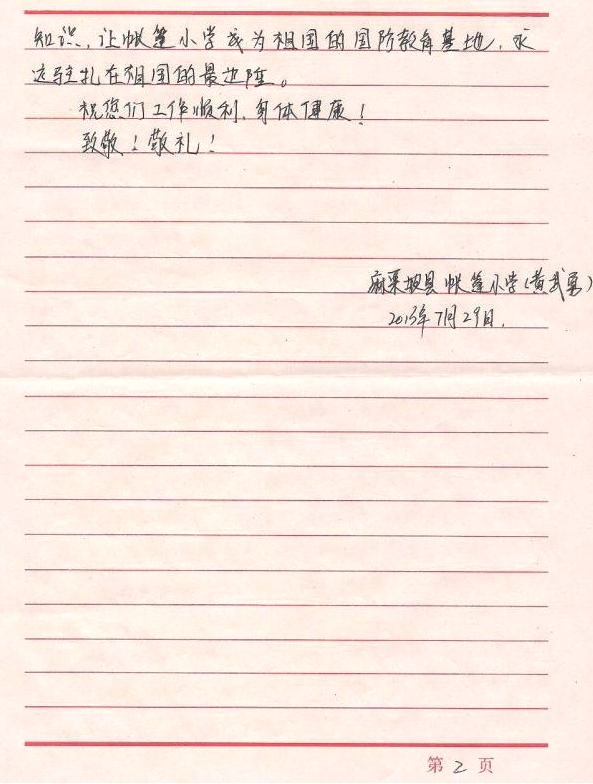 知识,让帐篷小学成为祖国的国防教育基地,永
远驻扎在祖国的最边陲。
祝您们工作顺利,身体健康!
致敬!敬礼!
麻栗坡县帐篷小学(黄武勇)
2013年7月29日.
第 2 页